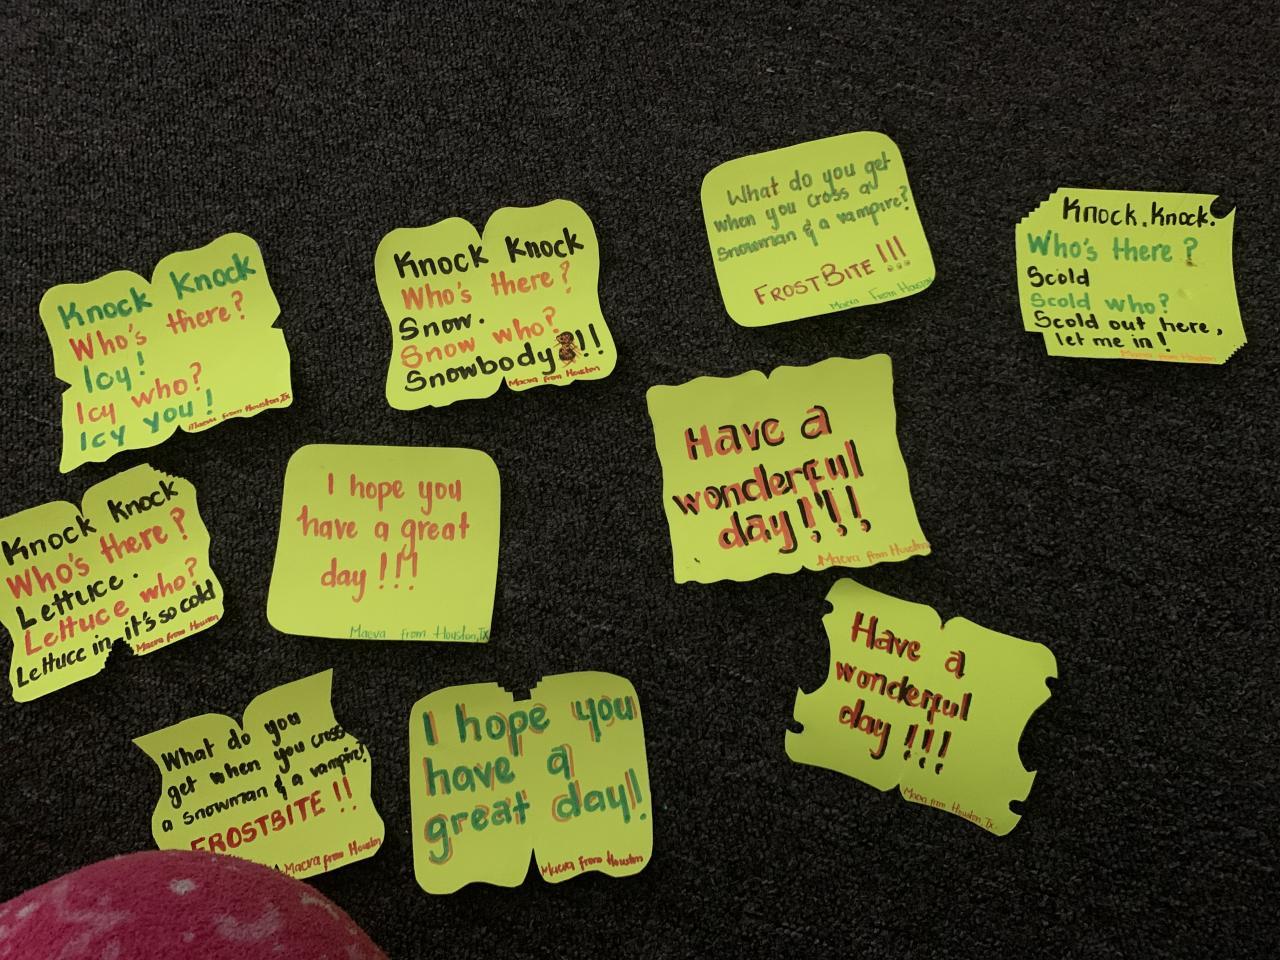 Knock Knock
Who's there?
Icy!
Icy who?
Icy you!
Maeva from Houston, Tx
Knock Knock
Who's there?
Snow.
Snow who?
Snowbody!!
Maeva from Houston
What do you get
when you cross a
snowman & a vampire?
FROSTBITE!!!
Maeva From Houston
Knock, Knock.
Who's there?
Scold
Scold who?
Scold out here,
let me in!
Maeva from Houston
Knock Knock
Who's there?
Lettuce.
Lettuce who?
Lettuce in, it's so cold
Maeva from Houston
I hope you
have a great
day!!!
Maeva from Houston, Tx
Have a
wonderful
day!!!
Maeva from Houston
What do you
get when you cross
a snowman & a vampire?
FROSTBITE!!
Maeva from Houston
I hope you
have a
great day!
Maeva from Houston
Have a
wonderful
day!!!
Maeva from Houston, Tx.